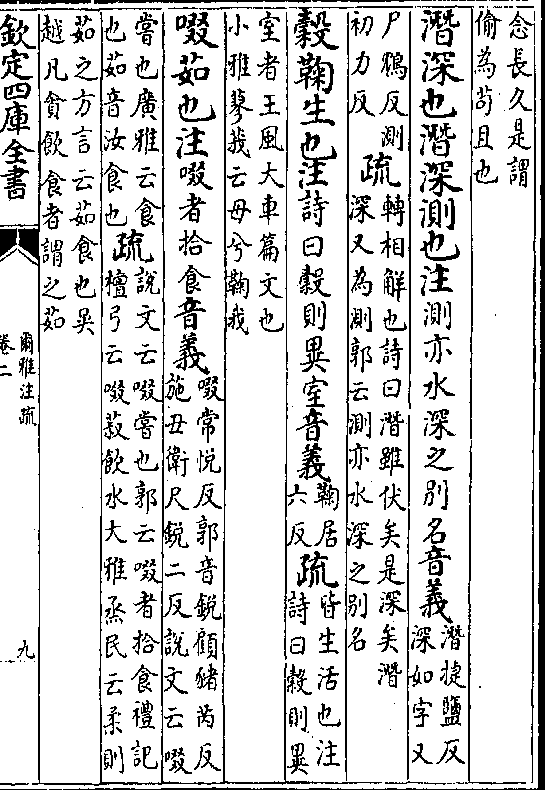 念長久是謂
偷為苟且也
潛深也潛深測也注測亦水深之別名音義潛捷鹽反
深如字又
尸鴆反測
初力反疏轉相解也詩曰潛雖伏矣是深矣潛
深又為測郭云測亦水深之別名
穀鞠生也注詩曰穀則異室音義鞠居
六反疏皆生活也注
詩曰穀則異
室者王風大車篇文也
小雅蓼莪云母兮鞠我
啜茹也注啜者拾食音義啜常悦反郭音鋭顧豬芮反
施丑衛尺鋭二反説文云啜
嘗也廣雅云食
也茹音汝食也疏説文云啜嘗也郭云啜者拾食禮記
檀弓云啜菽飲水大雅烝民云柔則
茹之方言云茹食也吳
越凡貪飲食者謂之茹
欽定四庫全書
爾雅注疏
卷二
九